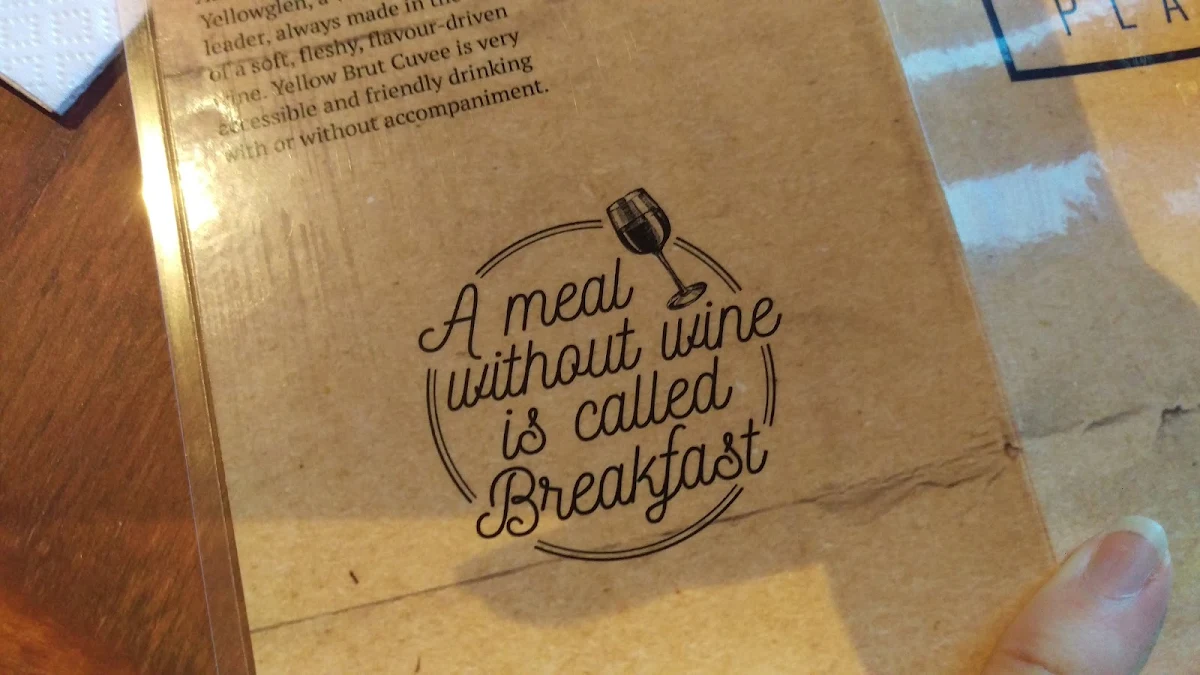 Yellowglen, a
leader, always made in the
of a soft, fleshy, flavour-driven
wine. Yellow Brut Cuvee is very
accessible and friendly drinking
with or without accompaniment.
A meal
without wine
is called
Breakfast
PLA